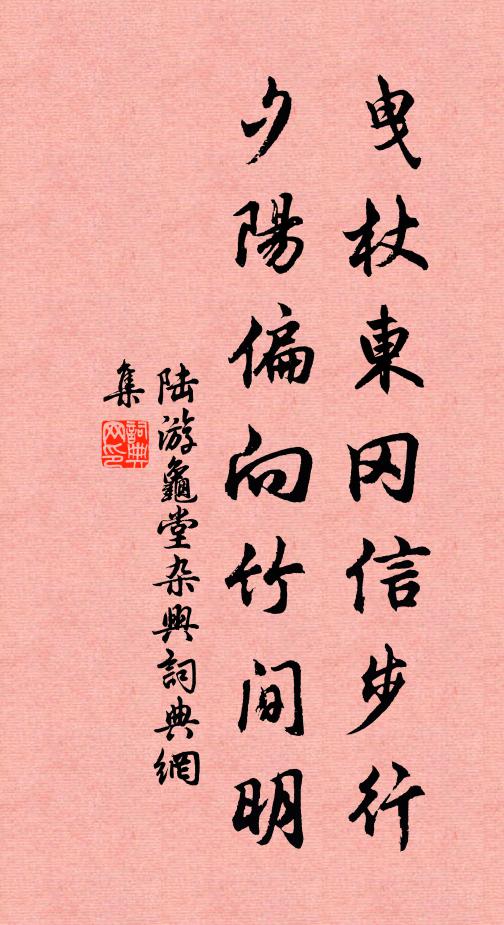 曳杖東冈信步行
夕陽偏向竹間明
陆游龜堂杂興詞典網
集
詞典网印